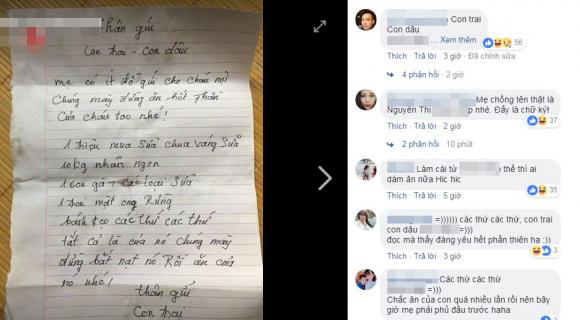 Thân gửi
Con trai - Con dâu
mẹ có ít đồ gửi cho cháu nội
Chúng mày đừng ăn hết Phần
Của cháu tao nhé!
1 triệu mua Sữa chua váng Sữa
10 kg nhãn ngon
1 con gà + các loại Sữa
1 chai mật ong Rừng
bánh kẹo các thứ các thứ
tất cả là của nó chúng mày
đừng bắt nạt nó Rồi ăn của
nó nhé!
thân gửi
Con trai
Con trai
Con dâu
... Xem thêm
56
Thích · Trả lời · 3 giờ · Đã chỉnh sửa
4 phản hồi · 2 giờ
Mẹ chồng tên thật là
Nguyễn Thị p nhé. Đấy là chữ ký!
37
Thích · Trả lời · 2 giờ
2 phản hồi · 10 phút
Làm cái từ thế thì ai
dám ăn nữa Hic hic
35
Thích · Trả lời · 3 giờ
=)))))) các thứ các thứ, con trai
con dấu =)))
đọc mà thấy đáng yêu hết phần thiên hạ :))
Thích · Trả lời · 3 giờ
13
Các thứ các thứ
=)))))))))))))
Chắc ăn của con quá nhiều lần rồi nên bây
giờ mẹ phải phủ đầu trước haha
Thích · Trả lời · 3 giờ
11